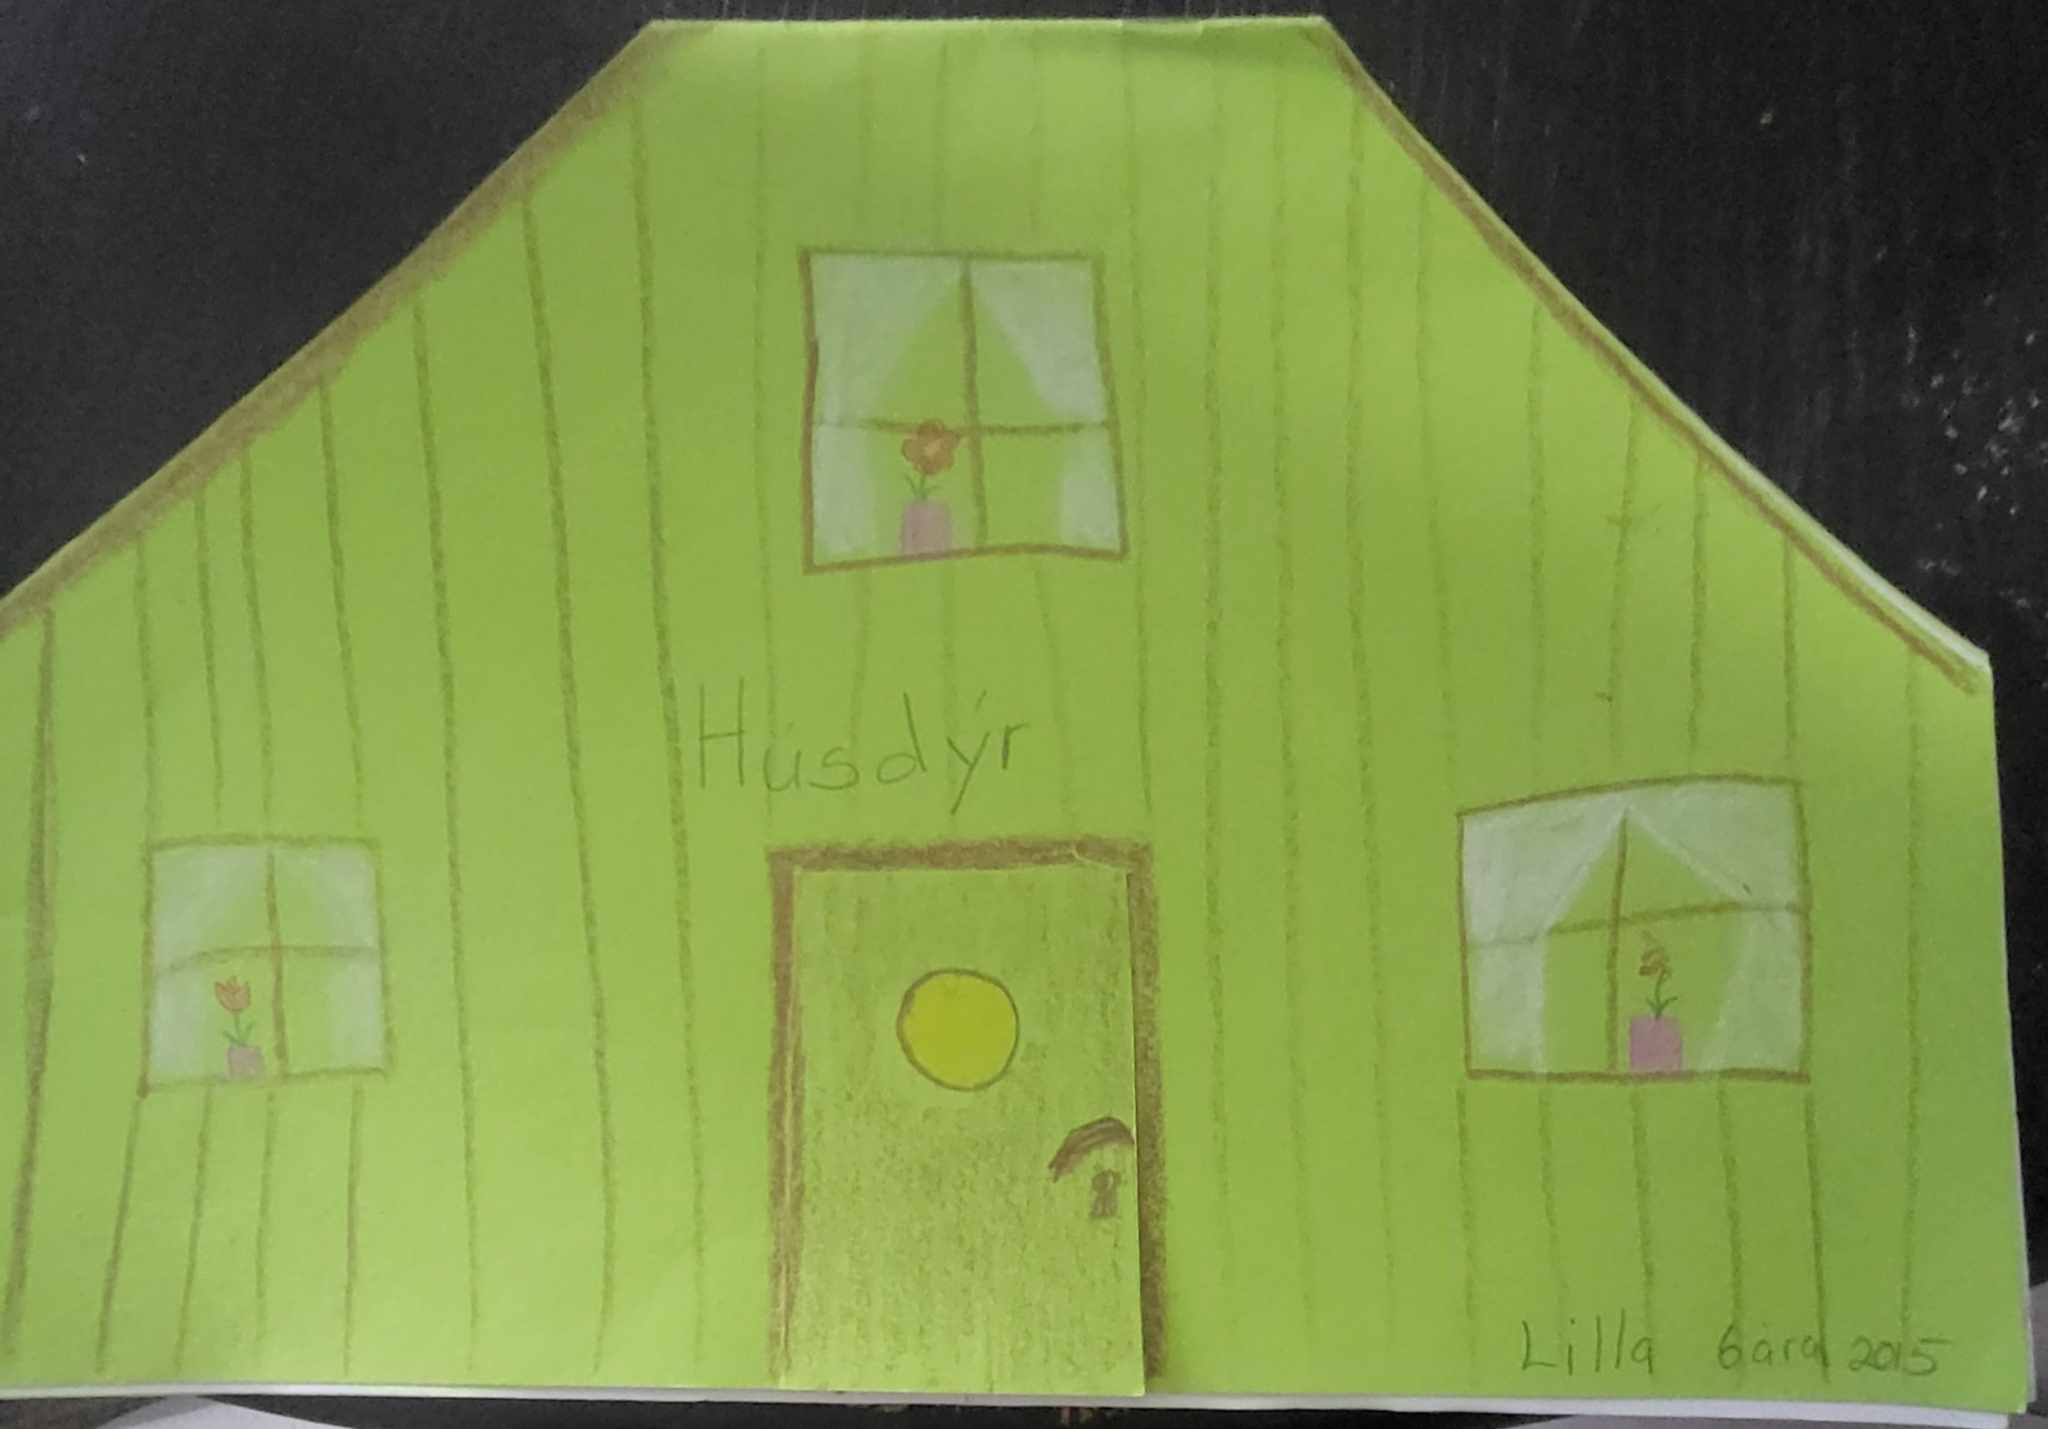 Húsdýr
Lilla 6ára 2015